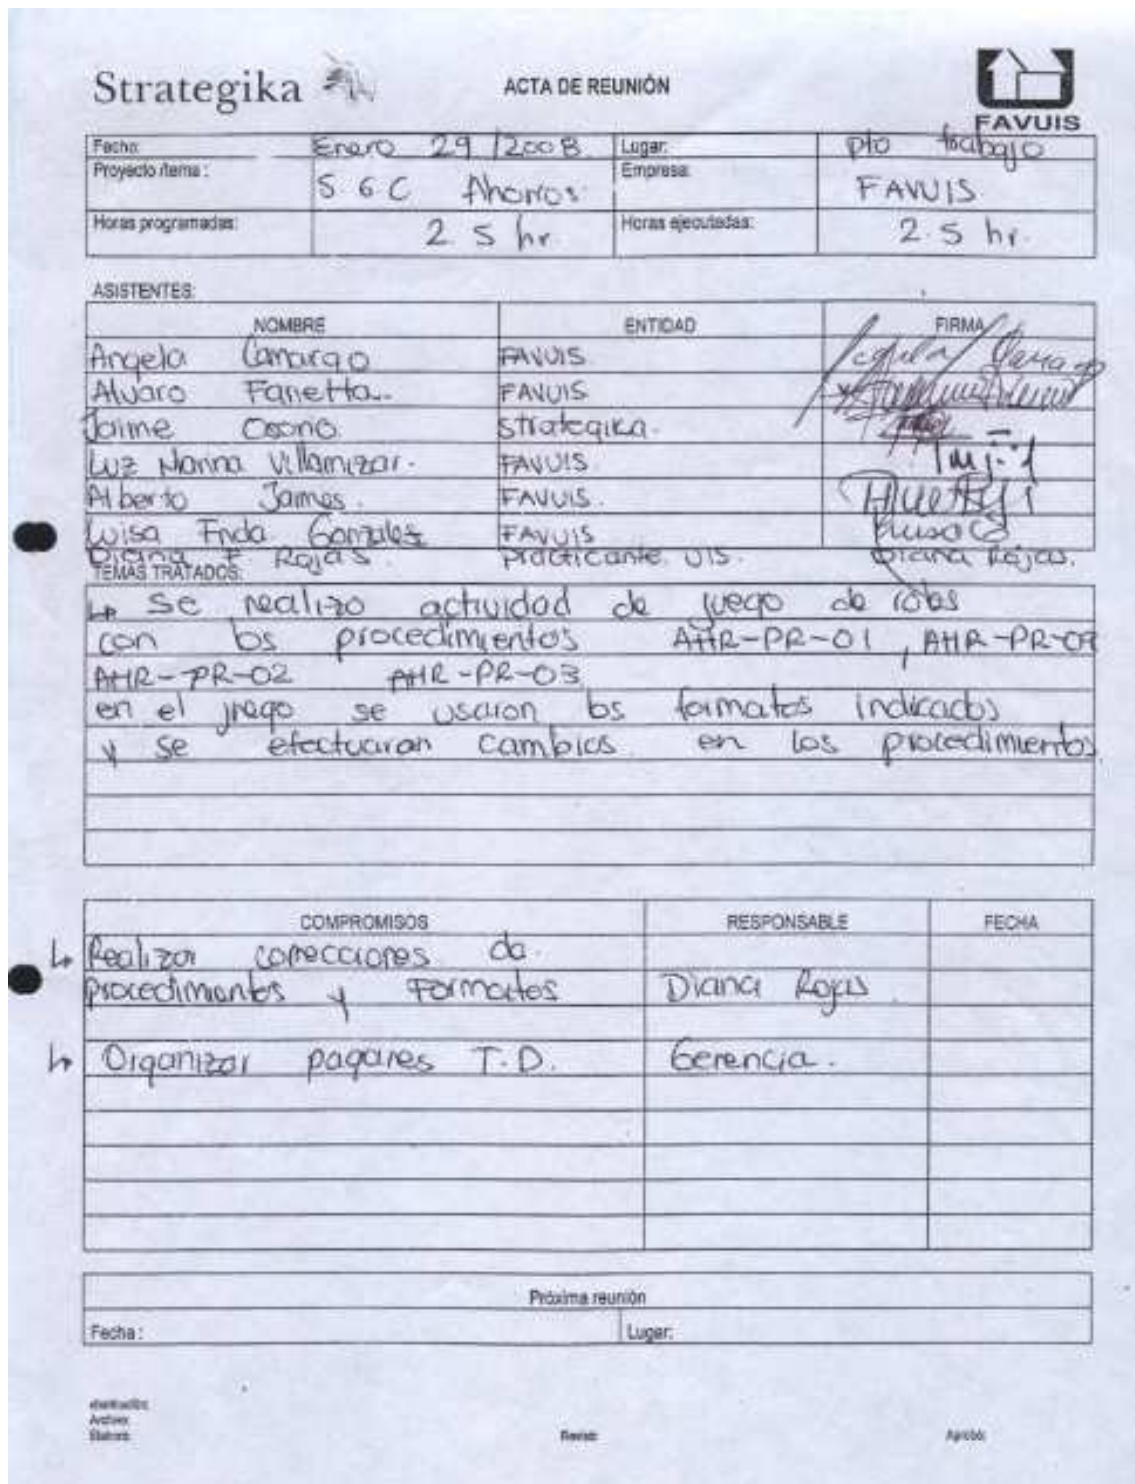 Strategika
ACTA DE REUNIÓN
FAVUIS
Fecha: Enero 29 /2008 Lugar: pto trabajo
Proyecto /tema : S G C Ahorros Empresa: FAVUIS
Horas programadas: 2.5 hr Horas ejecutadas: 2.5 hr.
ASISTENTES:
NOMBRE ENTIDAD FIRMA
Angela Camargo FAVUIS Camargo
Alvaro FAVUIS
Jaime Osorio Strategika.
Luz Marina Villamizar. FAVUIS
Alberto Jaimes. FAVUIS.
Luisa Frida Gonzalez FAVUIS Luisa G
Diana F. Rojas. Practicante UIS. Diana Rojas.
TEMAS TRATADOS:
↳ Se realizo actividad de juego de roles
con los procedimientos AHR-PR-01, AHR-PR-09
AHR-PR-02 AHR-PR-03
en el juego se usaron los formatos indicados
y se efectuaron cambios en los procedimientos
COMPROMISOS RESPONSABLE FECHA
↳ Realizar correcciones de
procedimientos y Formatos Diana Rojas
↳ Organizar pagares T.D. Gerencia.
Próxima reunión
Fecha : Lugar:
Archivo:
Elaboró: Revisó: Aprobó: